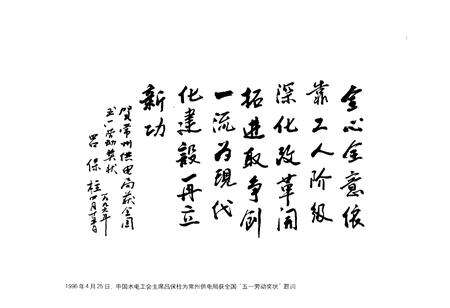 全心全意依
靠工人阶级
深化改革开
拓进取争创
一流为现代
化建设再立
新功
贺常州供电局获全国
五一劳动奖状
吕保柱
一九九六年
四月廿五日
1996年4月25日，中国水电工会主席吕保柱为常州供电局获全国“五一劳动奖状”题词